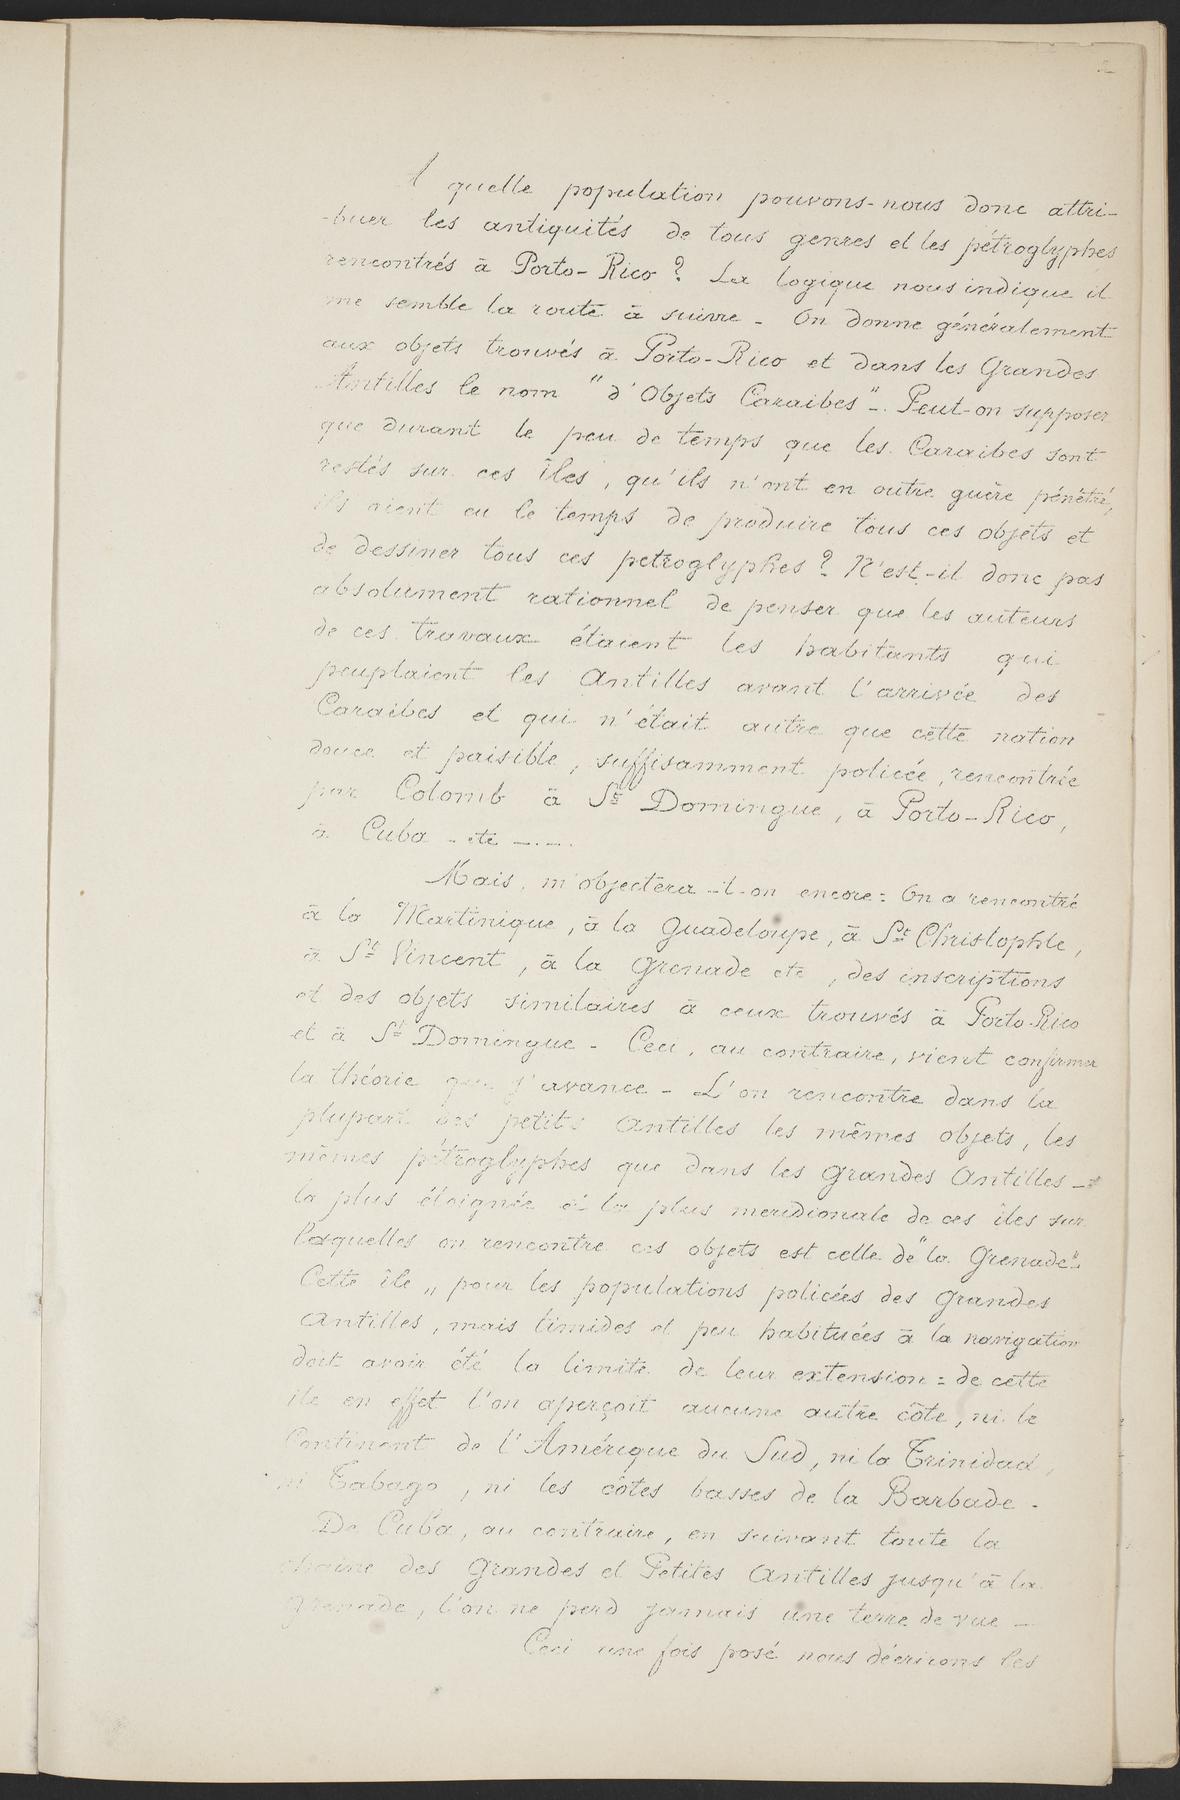 2
A quelle population pouvons-nous donc attri-
-buer les antiquités de tous genres et les pétroglyphes
rencontrés à Porto-Rico ? La logique nous indique il
me semble la route à suivre - On donne généralement
aux objets trouvés à Porto-Rico et dans les Grandes
Antilles le nom "d'Objets Caraibes" -. Peut-on supposer
que durant le peu de temps que les Caraibes sont
restés sur ces îles, qu'ils n'ont en outre guère pénétré,
ils aient eu le temps de produire tous ces objets et
de dessiner tous ces petroglyphes ? N'est-il donc pas
absolument rationnel de penser que les auteurs
de ces travaux étaient les habitants qui
peuplaient les Antilles avant l'arrivée des
Caraibes et qui n'était autre que cette nation
douce et paisible, suffisamment policée, rencontrée
par Colomb à St Domingue, à Porto-Rico,
à Cuba - etc -.-.
Mais, m'objectera-t-on encore : On a rencontré
à la Martinique, à la Guadeloupe, à St Christophle,
à St Vincent, à la Grenade etc, des inscriptions
et des objets similaires à ceux trouvés à Porto-Rico
et à St Domingue - Ceci, au contraire, vient confirmer
la théorie que j'avance - L'on rencontre dans la
plupart des petites Antilles les mêmes objets, les
mêmes pétroglyphes que dans les Grandes Antilles -
la plus éloignée et la plus meridionale de ces îles sur
laquelles on rencontre ces objets est celle de "la Grenade".
Cette île, pour les populations policées des Grandes
Antilles, mais timides et peu habituées à la navigation
doit avoir été la limite de leur extension : de cette
île en effet l'on aperçoit aucune autre côte, ni le
Continent de l'Amérique du Sud, ni la Trinidad,
ni Tabago, ni les côtes basses de la Barbade -
De Cuba, au contraire, en suivant toute la
chaine des Grandes et Petites Antilles jusqu'à la
Grenade, l'on ne perd jamais une terre de vue -
Ceci une fois posé nous décrirons les